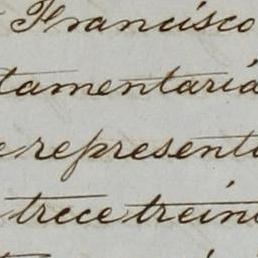 Francisco
tamentaria
e represent
trece trein